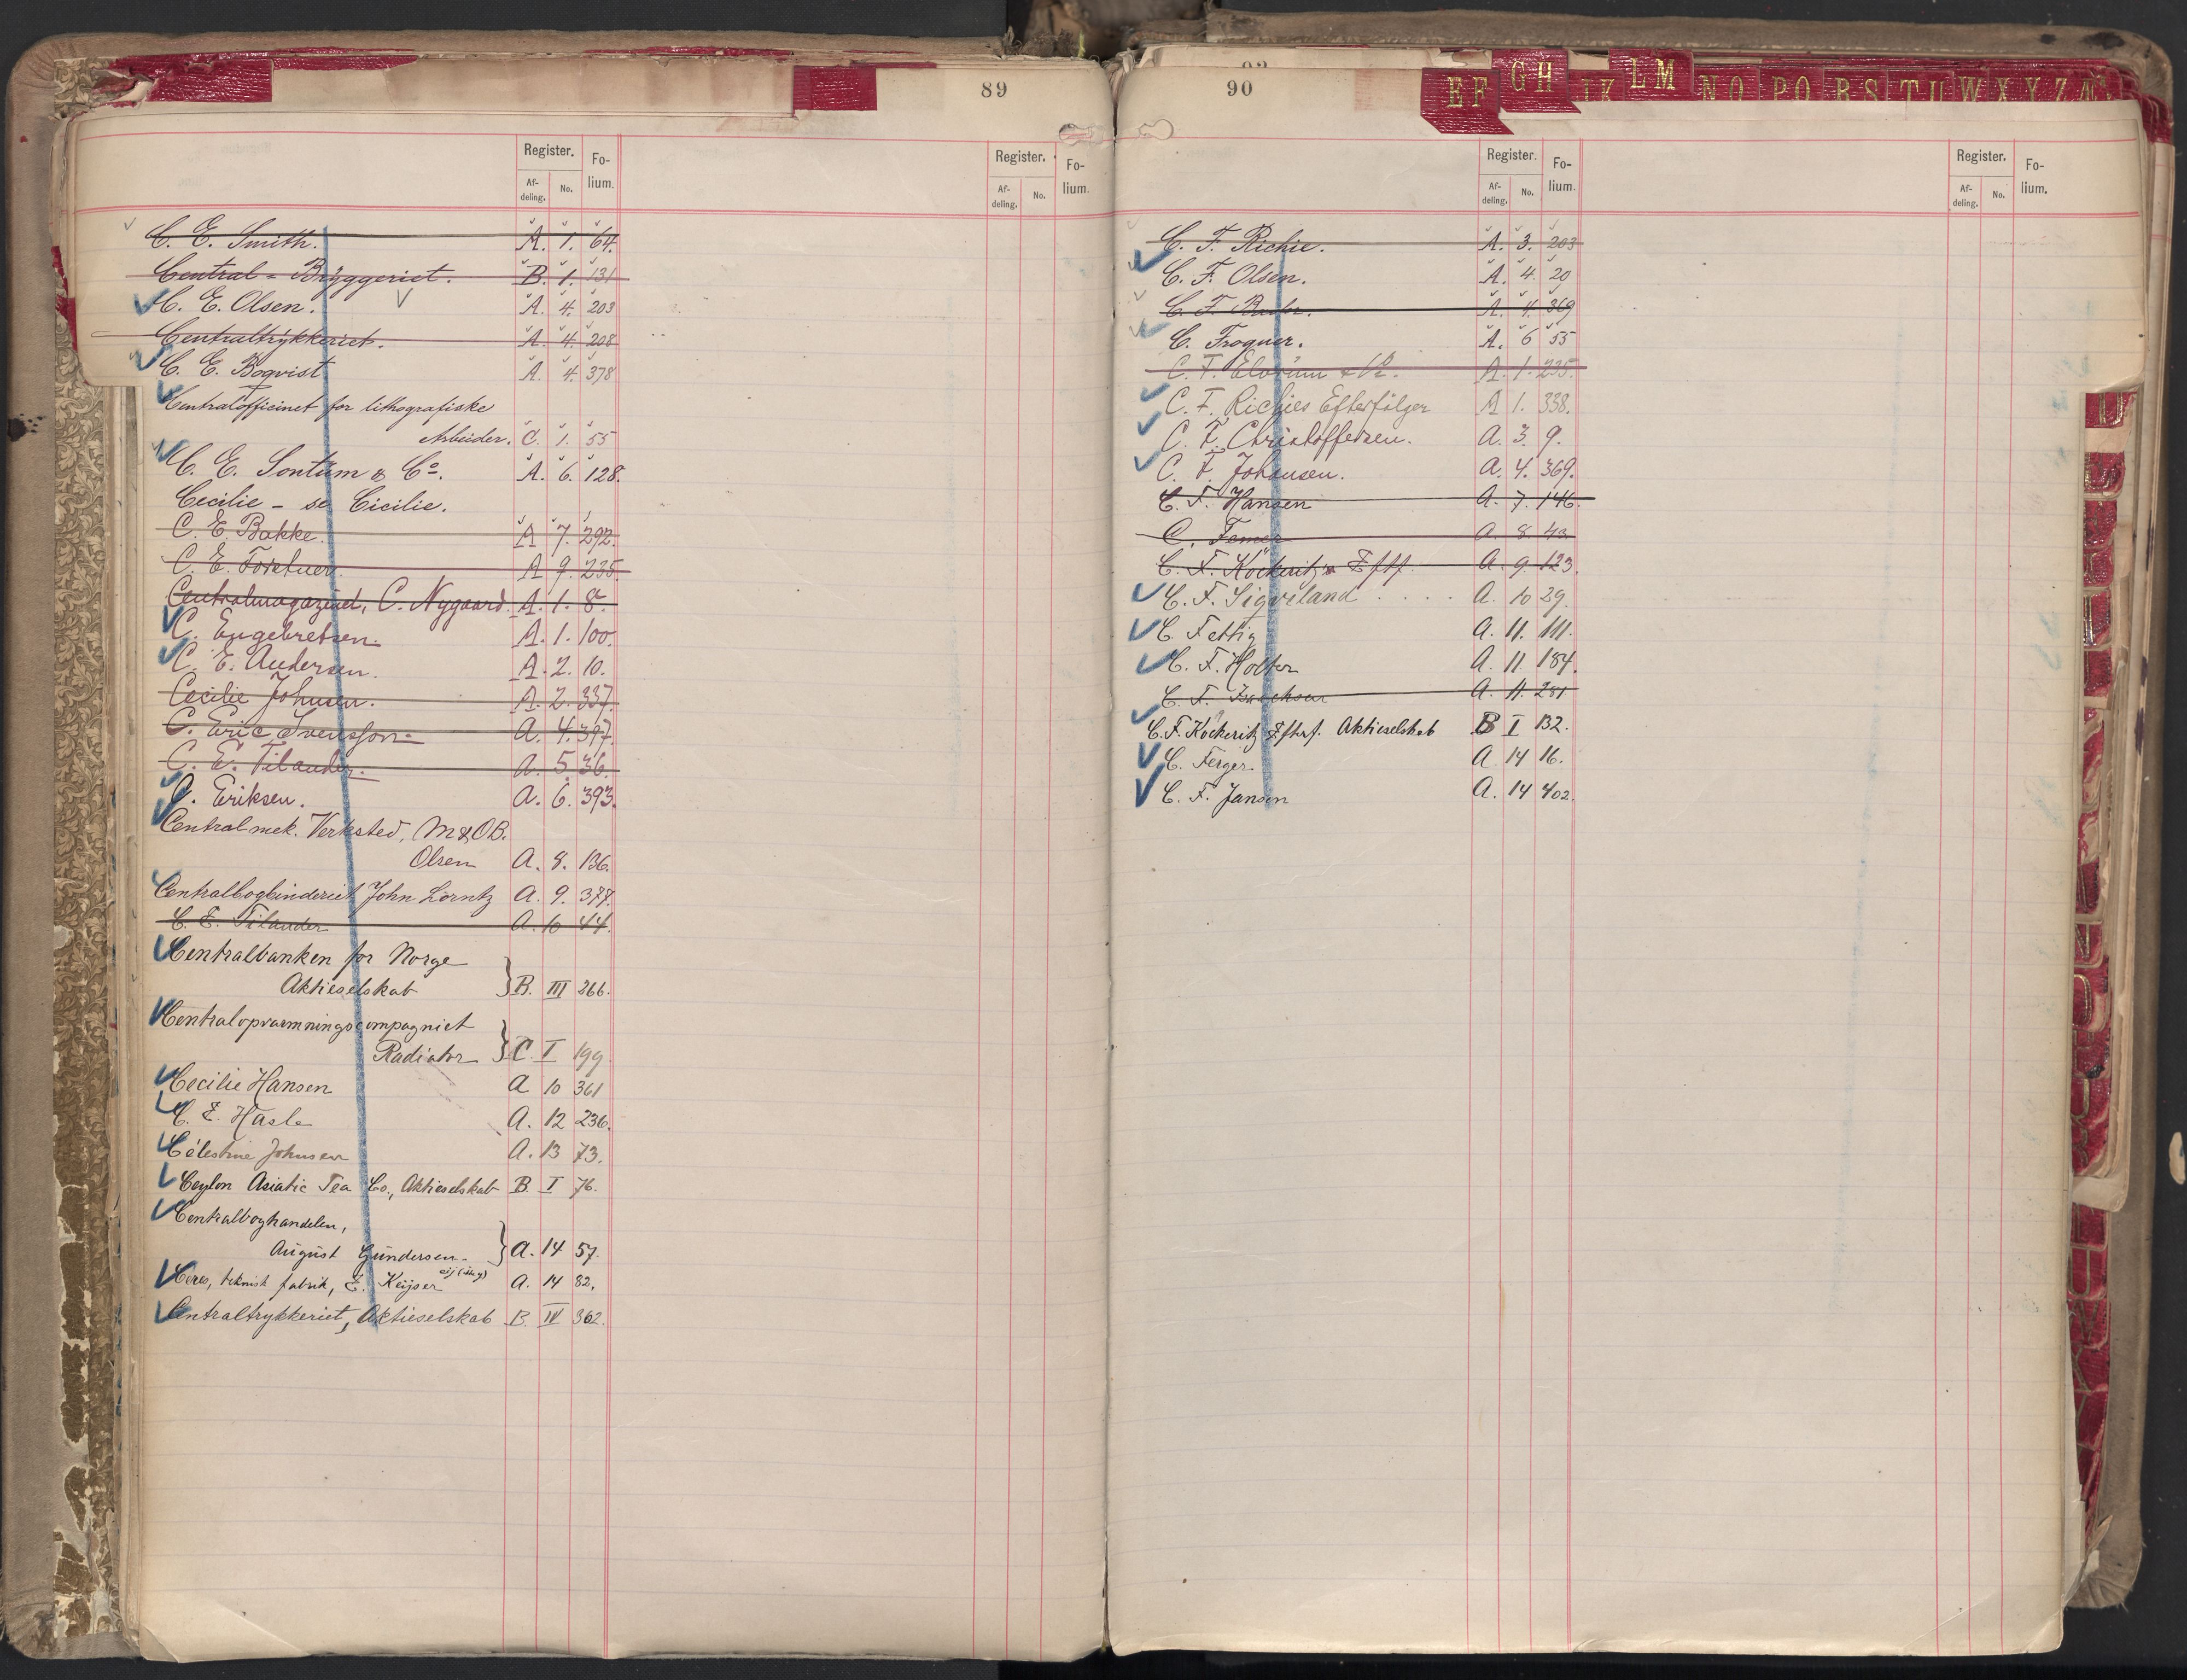 89
Register. Fo-
Af- No. lium.
deling.
Register. Fo-
Af- No. lium.
deling.
C. E. Smith. A. 1. 64.
Central-Bryggeriet. B. 1. 131
C. E. Olsen. A. 4. 203
Centraltrykkeriet. A. 4. 208
C. E. Boqvist A. 4. 378
Centralofficinet for lithografiske
Arbeider. C. 1. 55
C. E. Sontum & Co. A. 6. 128.
Cecilie - se Cicilie.
C. E. Bakke. A 7. 292.
C. E. A 9. 235.
Centralmagazinet, C. Nygaard. A. 1. 8.
C. Engebretsen. A. 1. 100.
C. E. Andersen. A. 2. 10.
Cecilie Johnsen. A. 2. 337.
C. Eric Svensson. A. 4. 397.
C. E. Tilander. A. 5 36.
C. Eriksen. A. 6. 393.
Central mek. Verksted, M & O.B.
Olsen A. 8. 136.
Centralbogbinderiet John Lorntz A. 9. 377.
C. E. Tilander A. 10 44.
Centralbanken for Norge
Aktieselskab } B. III 266.
Centralopvarmningscompagniet
Radiator } C. I 199
Cecilie Hansen A 10 361
C. E. Hasle A. 12 236.
Célestine Johnsen A. 13 73.
Ceylon Asiatic Tea Co., Aktieselskab B. I 76.
Centralboghandelen,
August Gundersen. } A. 14 57.
Ceres, teknisk fabrik, E. Keyser A. 14 82.
Centraltrykkeriet, Aktieselskab B. IV 362.
90
EF GH JK LM NO PQ RS TU W X Y Z Æ
Register. Fo-
Af- No. lium.
deling.
Register. Fo-
Af- No. lium.
deling.
C. F. Richie. A. 3. 203
C. F. Olsen. A. 4. 20
C. F. A. 4. 369
C. Frogner. A. 6 55
C. F. A. 1. 235.
C. F. Richies Efterfölger A 1. 338.
C. F. Christoffersen. A. 3. 9.
C. F. Johansen. A. 4. 369.
C. F. Hansen A. 7. 146.
C. A. 8. 43
C. F. Köckeritz Eftf. A. 9. 123.
C. F. Sigveland A. 10 29.
C. Fettig A. 11. 111.
C. F. Holter A. 11. 184.
C. F. Isachsen A. 11. 281
C. F. Köckeritz Efterf. Aktieselskab B I 132.
C. Ferger. A. 14 16.
C. F. Jansen A. 14 402.